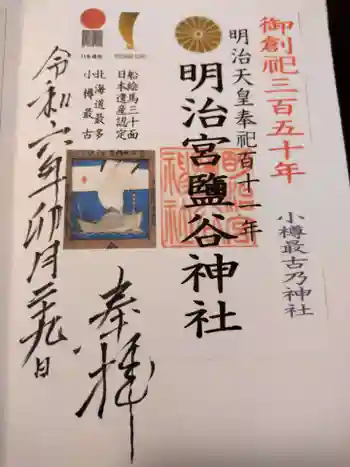 御創祀三百五十年
小樽最古乃神社
明治天皇奉祀百十一年
明治宮鹽谷神社
奉拝
船絵馬三十面
日本遺産認定
北海道最多
小樽最古
令和六年卯月二十九日